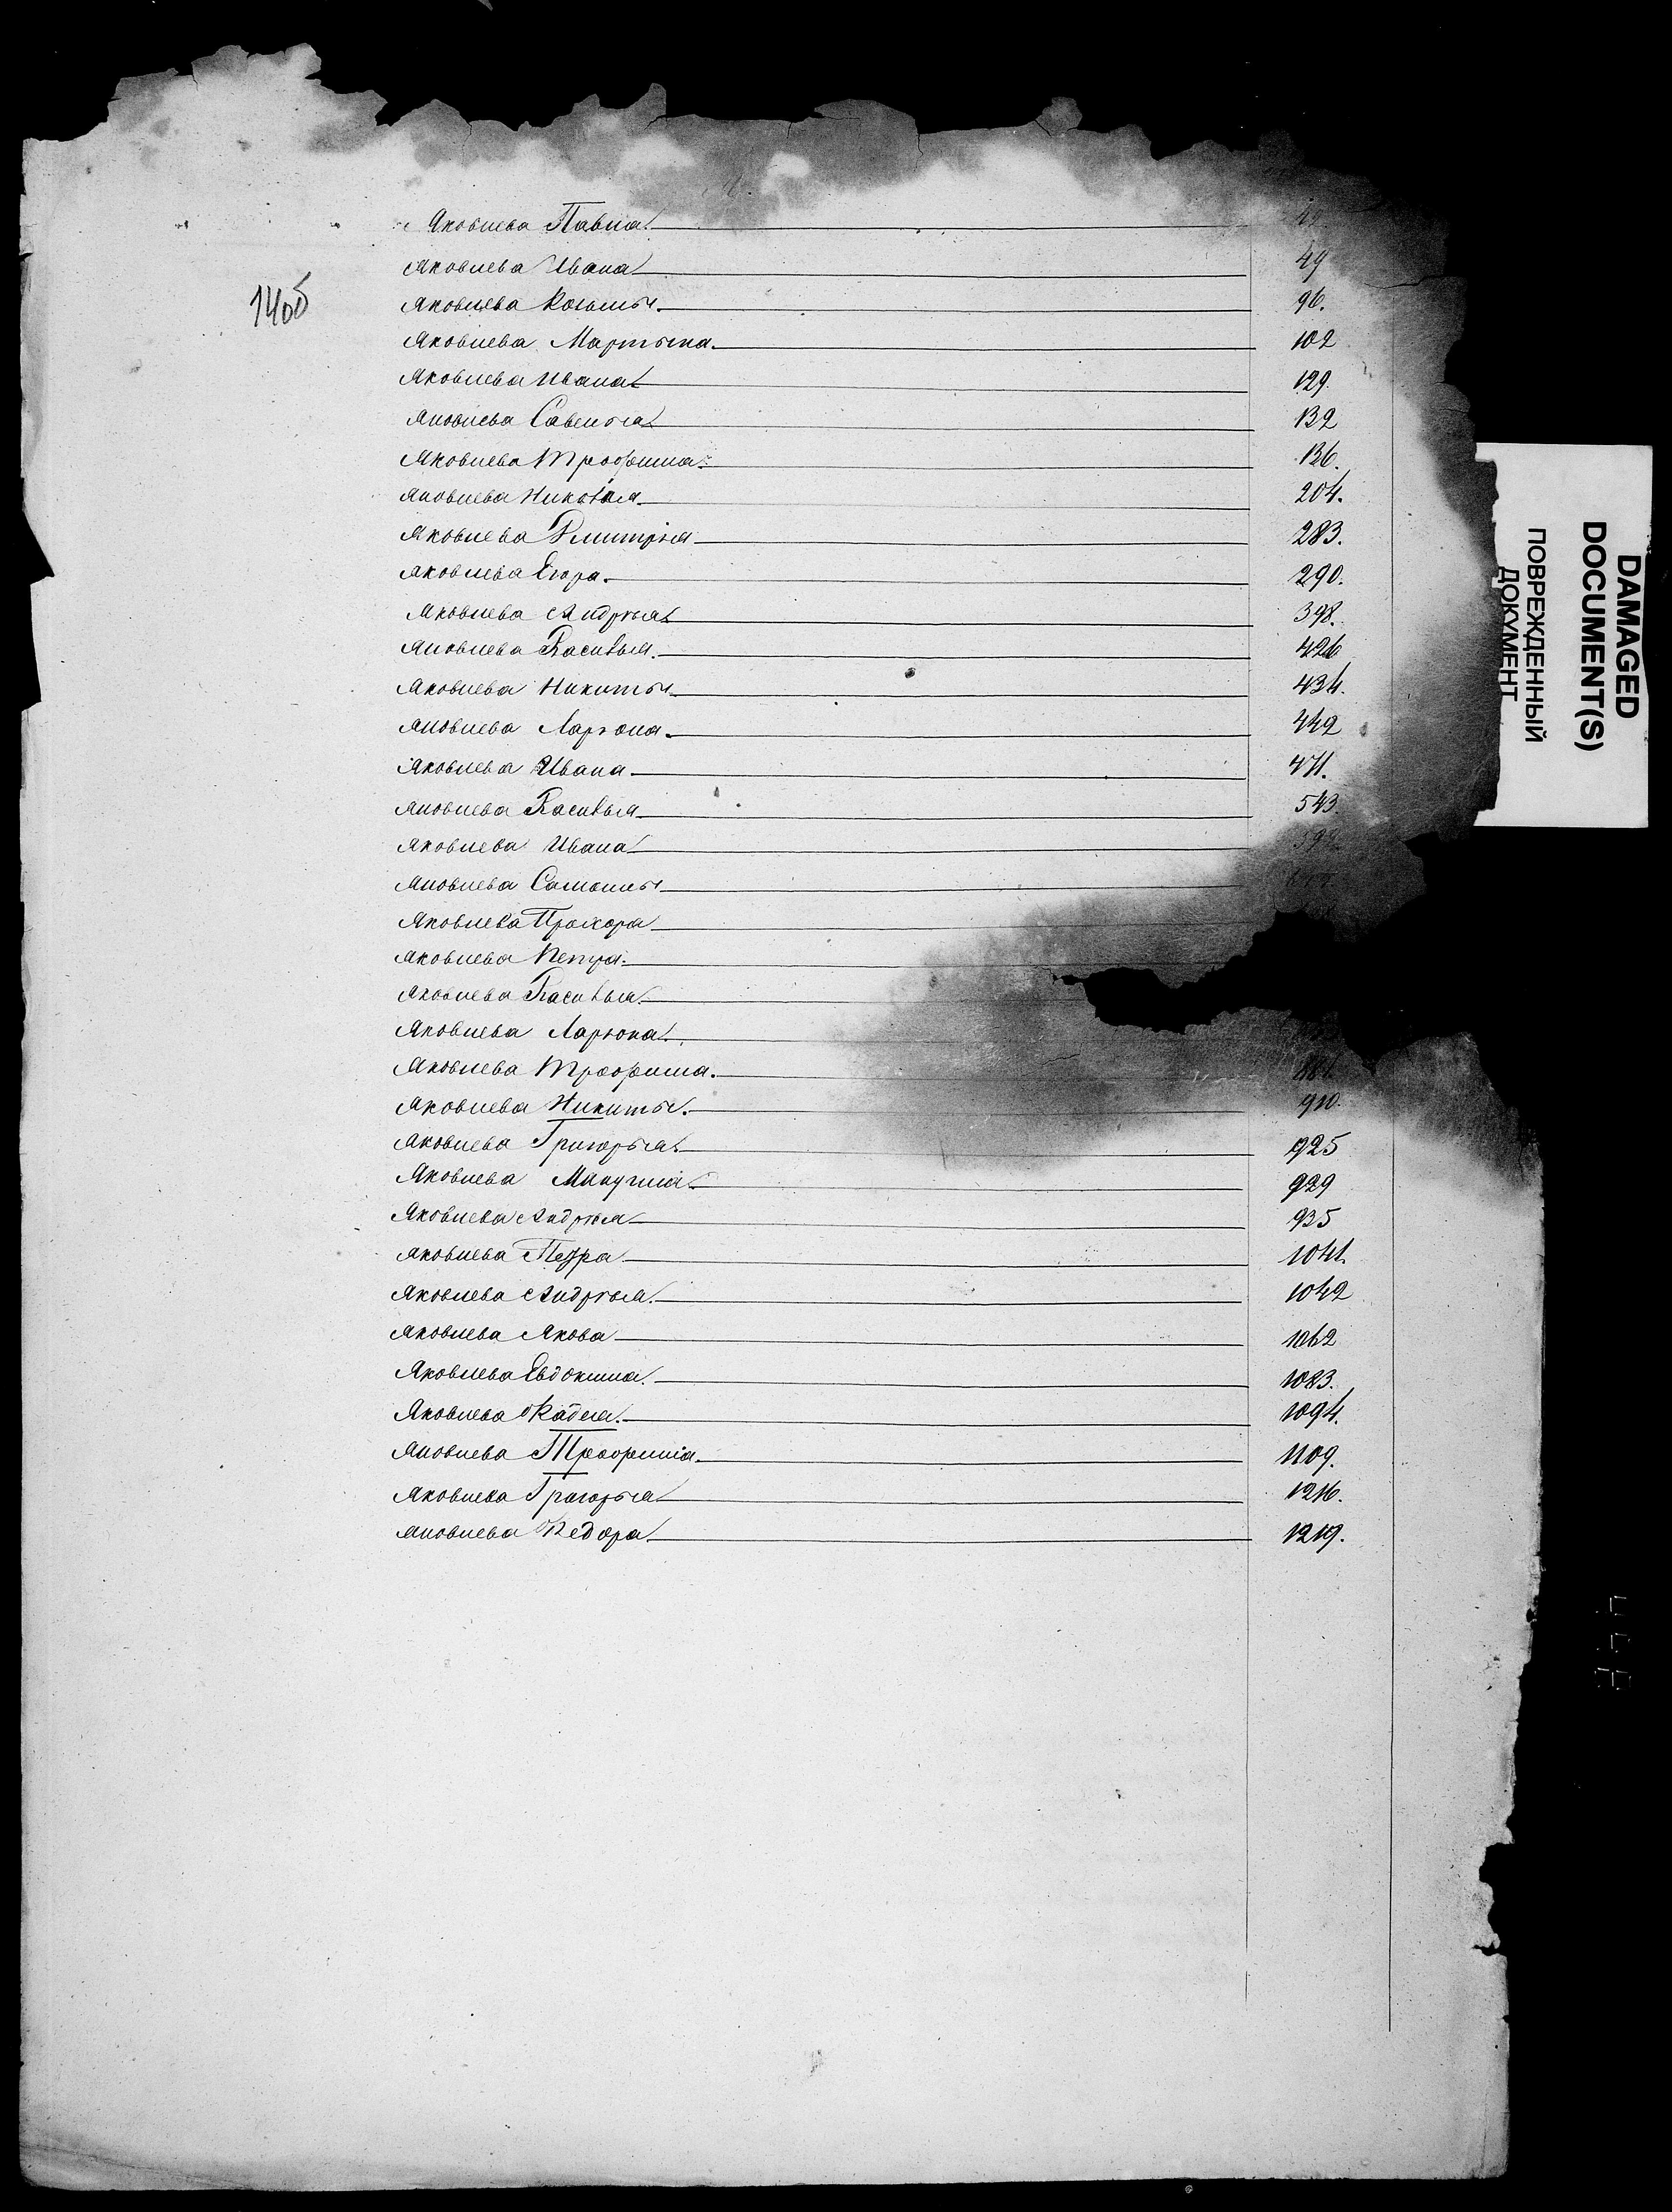 Яковлева Павла. 42.
Яковлева Ивана 49
14об
Яковлева Козьмы. 96.
Яковлева Мартына. 102
Яковлева Ивана 129.
Яковлева Савелья 132
Яковлева Трофима. 136.
Яковлева Николая 204.
Яковлева Дмитрія 283.
Яковлева Егора. 290.
Яковлева Андрея 398.
Яковлева Василья. 426
Яковлева Никиты 434.
Яковлева Ларіона. 442
Яковлева Ивана. 471.
Яковлева Василья 543.
Яковлева Ивана 592
Яковлева
Яковлева Прохора
Яковлева Петра.
Яковлева Василья.
Яковлева Ларіона.
Яковлева Трофима. 881.
Яковлева Никиты. 910.
Яковлева Григорья. 925
Яковлева 929
Яковлева Андрея 935
Яковлева Петра 1041.
Яковлева Андрея. 1042
Яковлева Якова 1062
Яковлева Евдокима. 1083.
Яковлева Фадея. 1094.
Яковлева Трофима. 1109.
Яковлева Григорья 1216.
Яковлева Федора. 1219.
DAMAGED
DOCUMENT(S)
ПОВРЕЖДЕННЫЙ
ДОКУМЕНТ